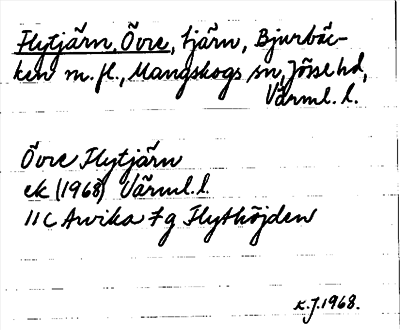 Flytjärn, Övre, tjärn, Bjurbäc-
ken m.fl., Mangskogs sn, Jösse hd,
Värml. l.
Övre Flytjärn
ek (1968) Värml. l.
11C Arvika 7g Flythöjden
K.J. 1968.